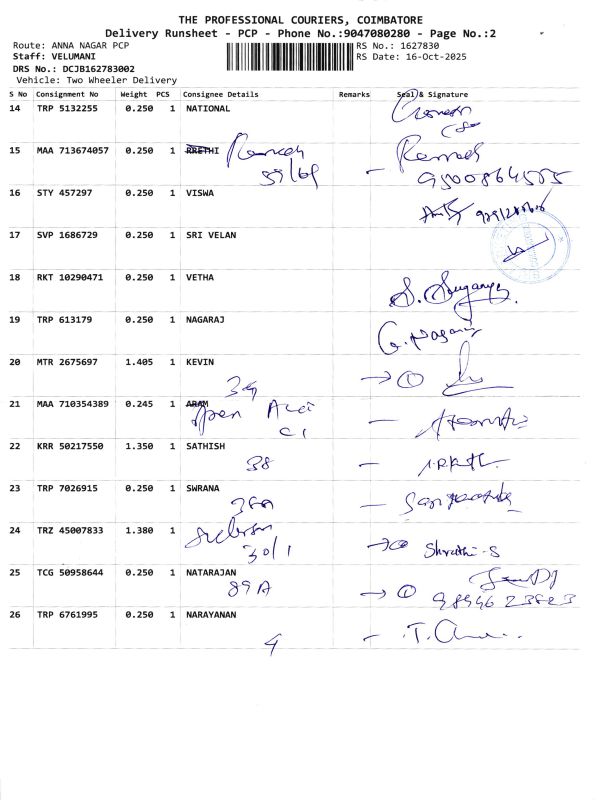 THE PROFESSIONAL COURIERS, COIMBATORE
Delivery Runsheet - PCP - Phone No.:9047080280 - Page No.:2
Route: ANNA NAGAR PCP
RS No.: 1627830
Staff: VELUMANI
RS Date: 16-Oct-2025
DRS No.: DCJB162783002
Vehicle: Two Wheeler Delivery
S No Consignment No Weight PCS Consignee Details Remarks Seal & Signature
14 TRP 5132255 0.250 1 NATIONAL
15 MAA 713674057 0.250 1 RRETHI Ramesh - Ramesh
59/69 9500864555
16 STY 457297 0.250 1 VISWA
17 SVP 1686729 0.250 1 SRI VELAN
18 RKT 10290471 0.250 1 VETHA S. Suganya.
19 TRP 613179 0.250 1 NAGARAJ G. Nagaraj
20 MTR 2675697 1.405 1 KEVIN
34 → ①
21 MAA 710354389 0.245 1 ARAM
C1 -
22 KRR 50217550 1.350 1 SATHISH
38 -
23 TRP 7026915 0.250 1 SWRANA
38A -
24 TRZ 45007833 1.380 1
30/1 → Shruthi-S
25 TCG 50958644 0.250 1 NATARAJAN
89A → ① 9894623823
26 TRP 6761995 0.250 1 NARAYANAN
4 - T.